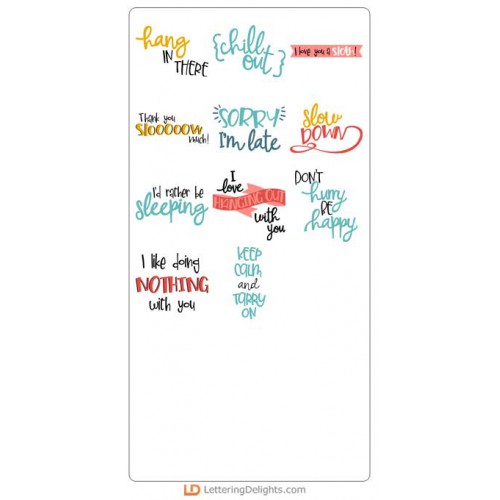 hang
IN
THERE
{chill
out}
I love you a sloth!
Thank you
slooooow
much!
SORRY
I'm late
Slow
DOWN
I'd rather be
sleeping
I
love
HANGING OUT
with
you
DON'T
hurry
BE
happy
I like doing
NOTHING
with you
KEEP
CALM
and
TARRY
ON
LD LetteringDelights.com